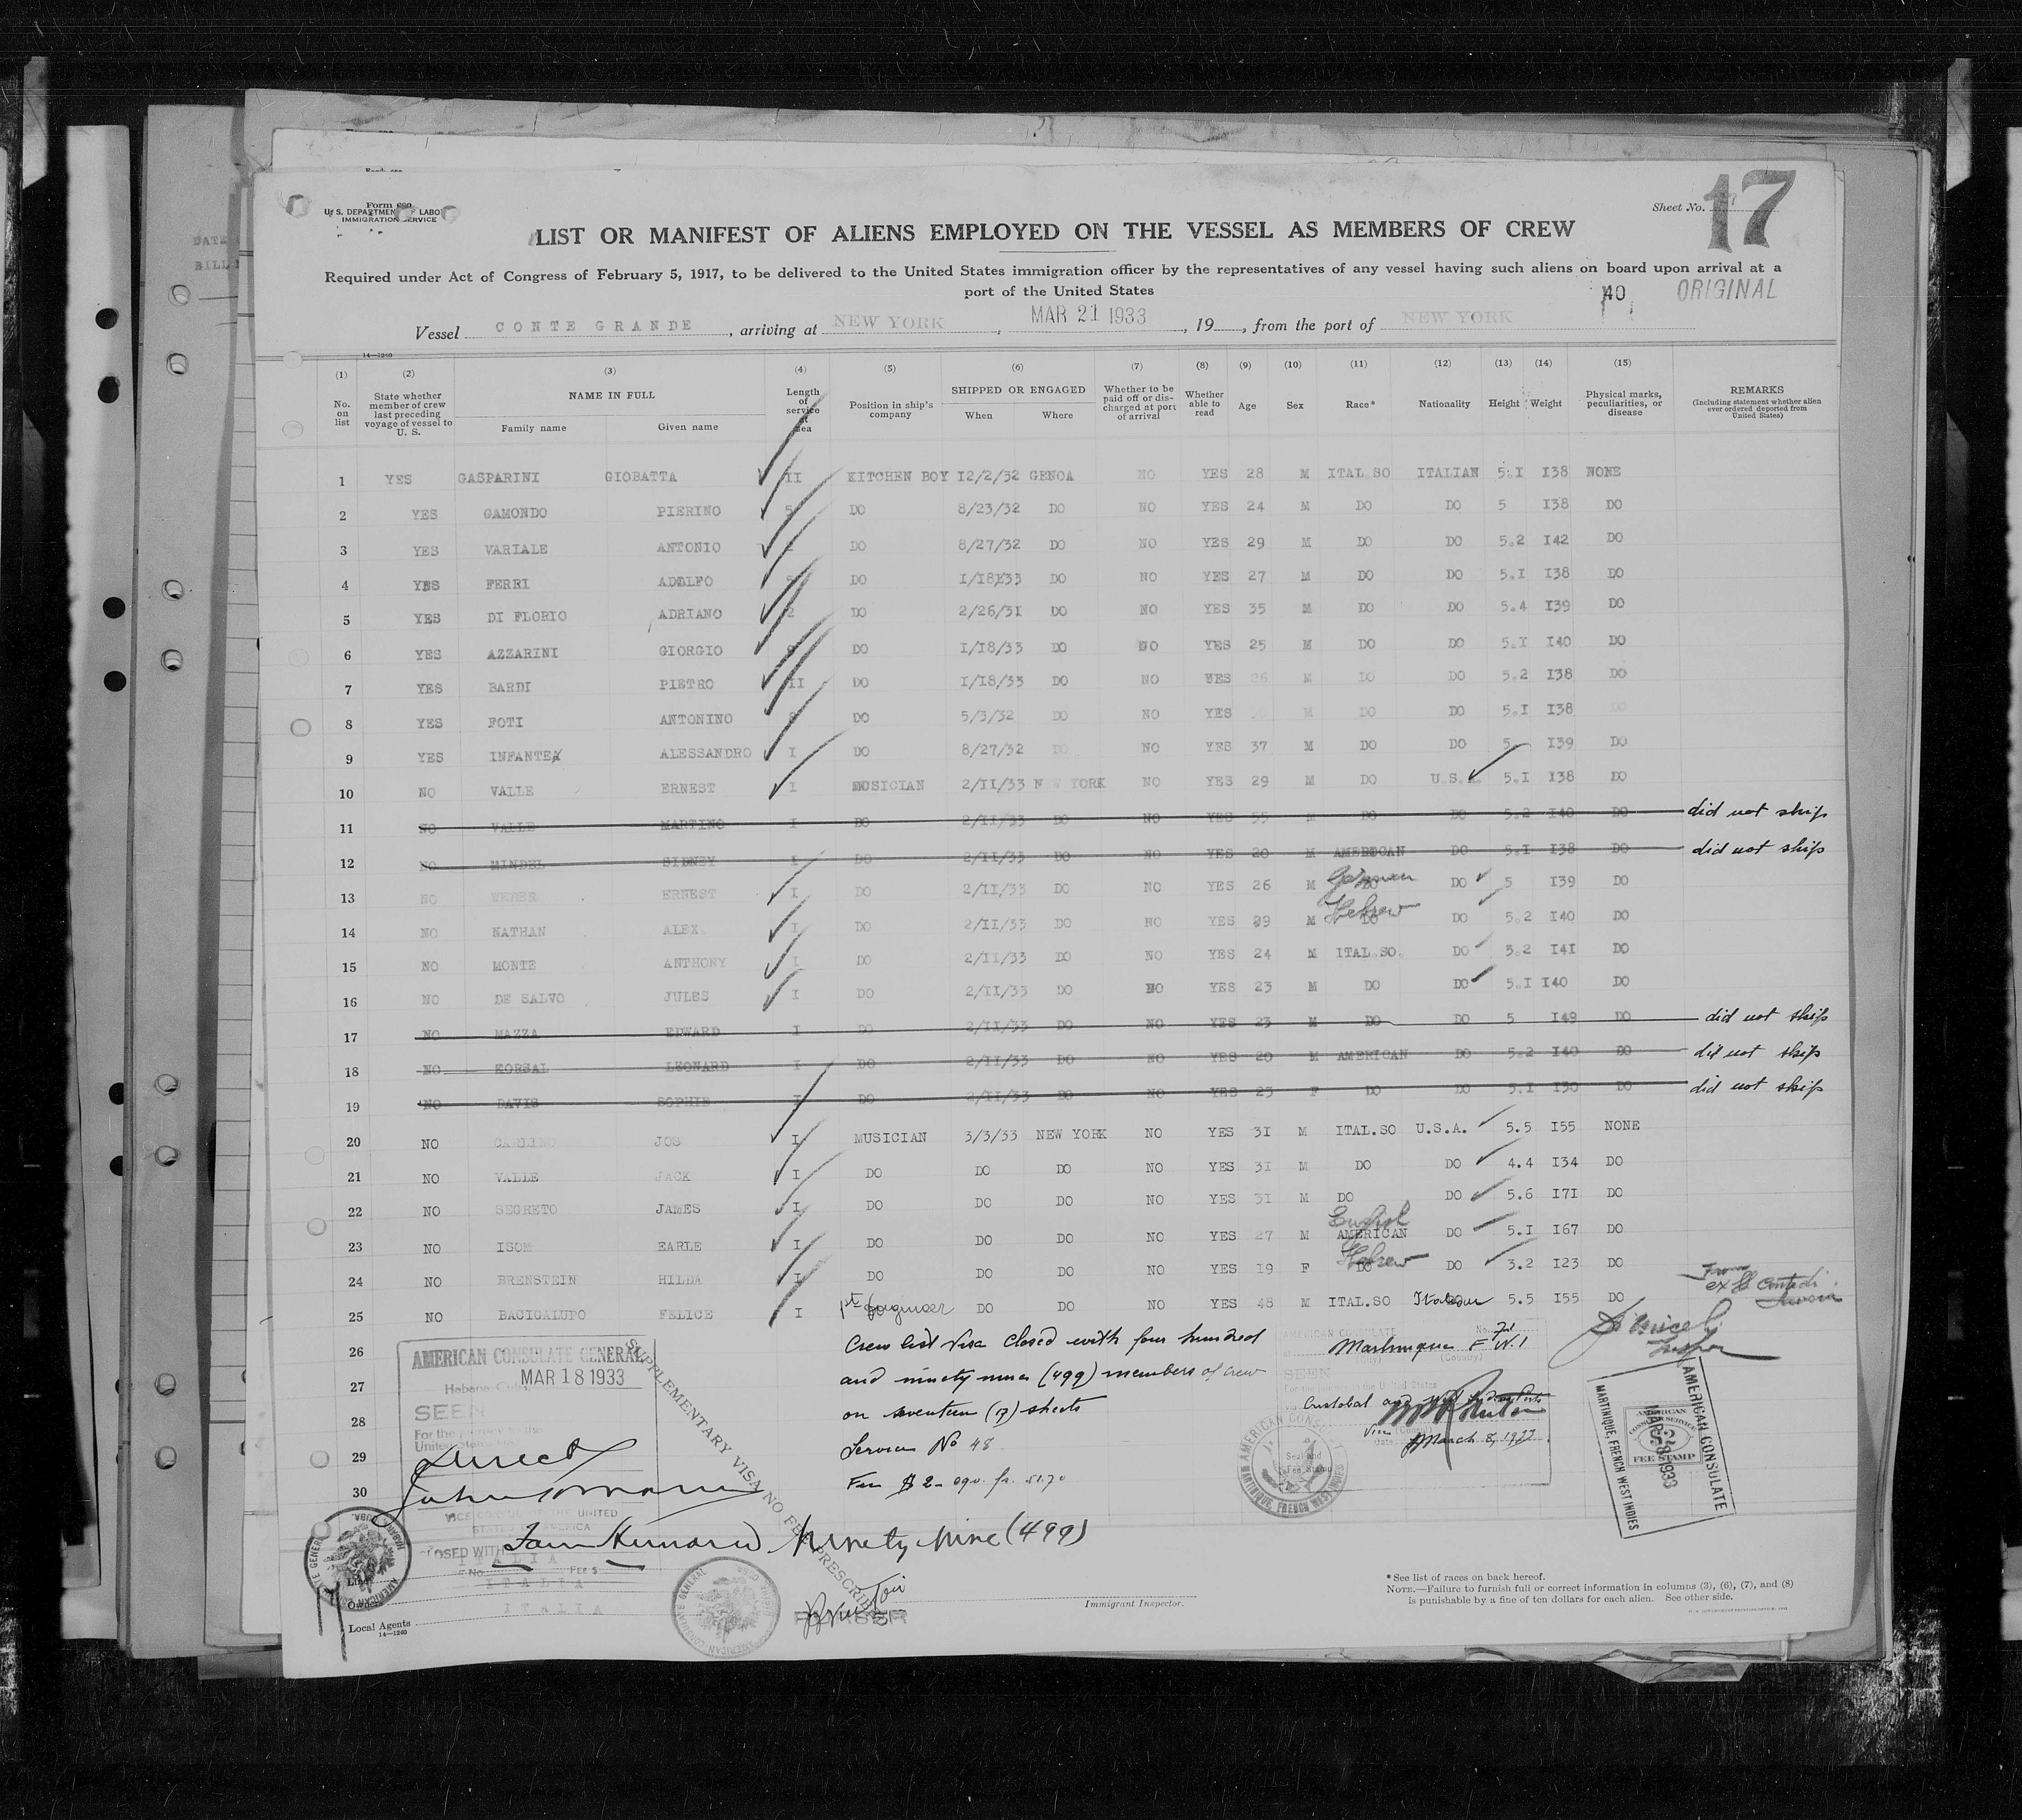 Form 680
U. S. DEPARTMENT OF LABOR
IMMIGRATION SERVICE
Sheet No. 17
LIST OR MANIFEST OF ALIENS EMPLOYED ON THE VESSEL AS MEMBERS OF CREW
Required under Act of Congress of February 5, 1917, to be delivered to the United States immigration officer by the representatives of any vessel having such aliens on board upon arrival at a
port of the United States
40 ORIGINAL
Vessel CONTE GRANDE, arriving at NEW YORK, MAR 21 1933, 19, from the port of NEW YORK
14—1240
(1) (2) (3) (4) (5) (6) (7) (8) (9) (10) (11) (12) (13) (14) (15)
No. on list
State whether member of crew last preceding voyage of vessel to U. S.
NAME IN FULL
Family name Given name
Length of service at sea
Position in ship's company
SHIPPED OR ENGAGED
When Where
Whether to be paid off or discharged at port of arrival
Whether able to read
Age Sex Race* Nationality Height Weight
Physical marks, peculiarities, or disease
REMARKS
(Including statement whether alien ever ordered deported from United States)
1 YES GASPARINI GIOBATTA II KITCHEN BOY I2/2/32 GENOA NO YES 28 M ITAL.SO ITALIAN 5.I I38 NONE
2 YES GAMONDO PIERINO 5 DO 8/23/32 DO NO YES 24 M DO DO 5 I38 DO
3 YES VARIALE ANTONIO 2 DO 8/27/32 DO NO YES 29 M DO DO 5.2 I42 DO
4 YES FERRI ADOLFO DO I/I8/33 DO NO YES 27 M DO DO 5.I I38 DO
5 YES DI FLORIO ADRIANO 2 DO 2/26/3I DO NO YES 35 M DO DO 5.4 I39 DO
6 YES AZZARINI GIORGIO DO I/I8/33 DO NO YES 25 M DO DO 5.I I40 DO
7 YES BARDI PIETRO II DO I/I8/33 DO NO YES 26 M DO DO 5.2 I38 DO
8 YES FOTI ANTONINO DO 5/3/32 DO NO YES M DO DO 5.I I38 DO
9 YES INFANTE ALESSANDRO I DO 8/27/32 DO NO YES 37 M DO DO 5 I39 DO
10 NO VALLE ERNEST I MUSICIAN 2/II/33 NEW YORK NO YES 29 M DO U.S.A. 5.I I38 DO
11 NO VALLE MARTINO I DO 2/II/33 DO NO YES 55 M DO DO 5.2 I40 DO did not ship
12 NO MINDEL SIDNEY I DO 2/II/33 DO NO YES 20 M AMERICAN DO 5.I I38 DO did not ship
13 NO WEBER ERNEST I DO 2/II/33 DO NO YES 26 M DO German DO 5 I39 DO
14 NO NATHAN ALEX. I DO 2/II/33 DO NO YES 29 M DO Hebrew DO 5.2 I40 DO
15 NO MONTE ANTHONY I DO 2/II/33 DO NO YES 24 M ITAL.SO. DO 5.2 I4I DO
16 NO DE SALVO JULES I DO 2/II/33 DO NO YES 23 M DO DO 5.I I40 DO
17 NO MAZZA EDWARD I DO 2/II/33 DO NO YES 23 M DO DO 5 I49 DO did not ship
18 NO KORSAL LEONARD I DO 2/II/33 DO NO YES 20 M AMERICAN DO 5.2 I40 DO did not ship
19 NO DAVIS SOPHIE I DO 2/II/33 DO NO YES 23 F DO DO 5.I I30 DO did not ship
20 NO CARLINO JOS I MUSICIAN 3/3/33 NEW YORK NO YES 3I M ITAL.SO U.S.A. 5.5 I55 NONE
21 NO VALLE JACK I DO DO DO NO YES 3I M DO DO 4.4 I34 DO
22 NO SEGRETO JAMES I DO DO DO NO YES 3I M DO DO 5.6 I7I DO
23 NO ISOM EARLE I DO DO DO NO YES 27 M AMERICAN English DO 5.I I67 DO
24 NO BRENSTEIN HILDA I DO DO DO NO YES I9 F DO Hebrew DO 3.2 I23 DO
25 NO BACIGALUPO FELICE I 1st Engineer DO DO NO YES 48 M ITAL.SO Italian 5.5 I55 DO
From ex SS Conte di Savoia
26 Crew list visa closed with four hundred
27 and ninety nine (499) members of crew
28 on seventeen (17) sheets
29 Service No 48
30 Fee $ 2- equ. fr. 51.70
AMERICAN CONSULATE GENERAL
MAR 18 1933
Habana, Cuba
SEEN
For the journey to the
United States via
Direct
VICE CONSUL OF THE UNITED
STATES OF AMERICA
CLOSED WITH Four Hundred Ninety Nine (499)
No. Fee $
SUPPLEMENTARY VISA NO FEE PRESCRIBED
AMERICAN CONSULATE
No. 48
Martinique F.W.I
(City) (Country)
SEEN
For the journey to the United States
Cristobal and West Indies Ports
Vice
March 8, 1933
AMERICAN CONSULATE
MARTINIQUE, FRENCH WEST INDIES
Seal and
Fee Stamp
AMERICAN CONSULATE
MAR 8 1933
MARTINIQUE, FRENCH WEST INDIES
AMERICAN
CONSULAR SERVICE
FEE STAMP
AMERICAN CONSULATE GENERAL
HABANA, CUBA.
Line ITALIA
Owners ITALIA
Local Agents ITALIA
14—1240
PURSER
Immigrant Inspector.
*See list of races on back hereof.
NOTE.—Failure to furnish full or correct information in columns (3), (6), (7), and (8)
is punishable by a fine of ten dollars for each alien. See other side.